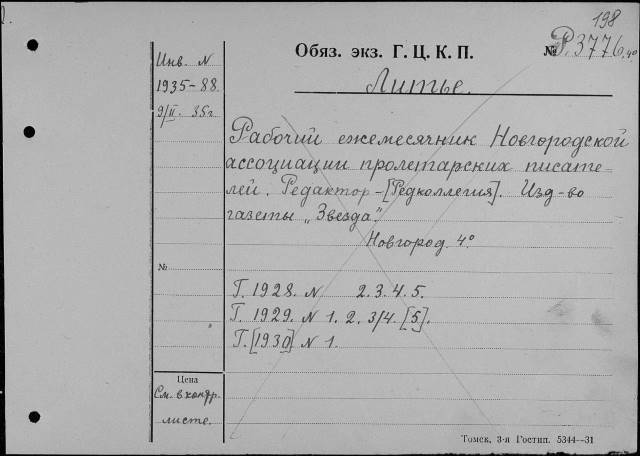 198
Обяз. экз. Г. Ц. К. П. № Р. 3776 4°
Литье.
Инв. N
1935-88.
9/II. 35г.
Рабочий ежемесячник Новгородской
ассоциации пролетарских писате-
лей. Редактор-[Редколлегия]. Изд-во
газеты „Звезда".
Новгород. 4°
№
Г. 1928. N 2. 3. 4. 5.
Г. 1929. N 1. 2. 3/4. [5].
Г. [1930] N 1.
Цена
См. в контр.
листе.
Томск, 3-я Гостип. 5344—31